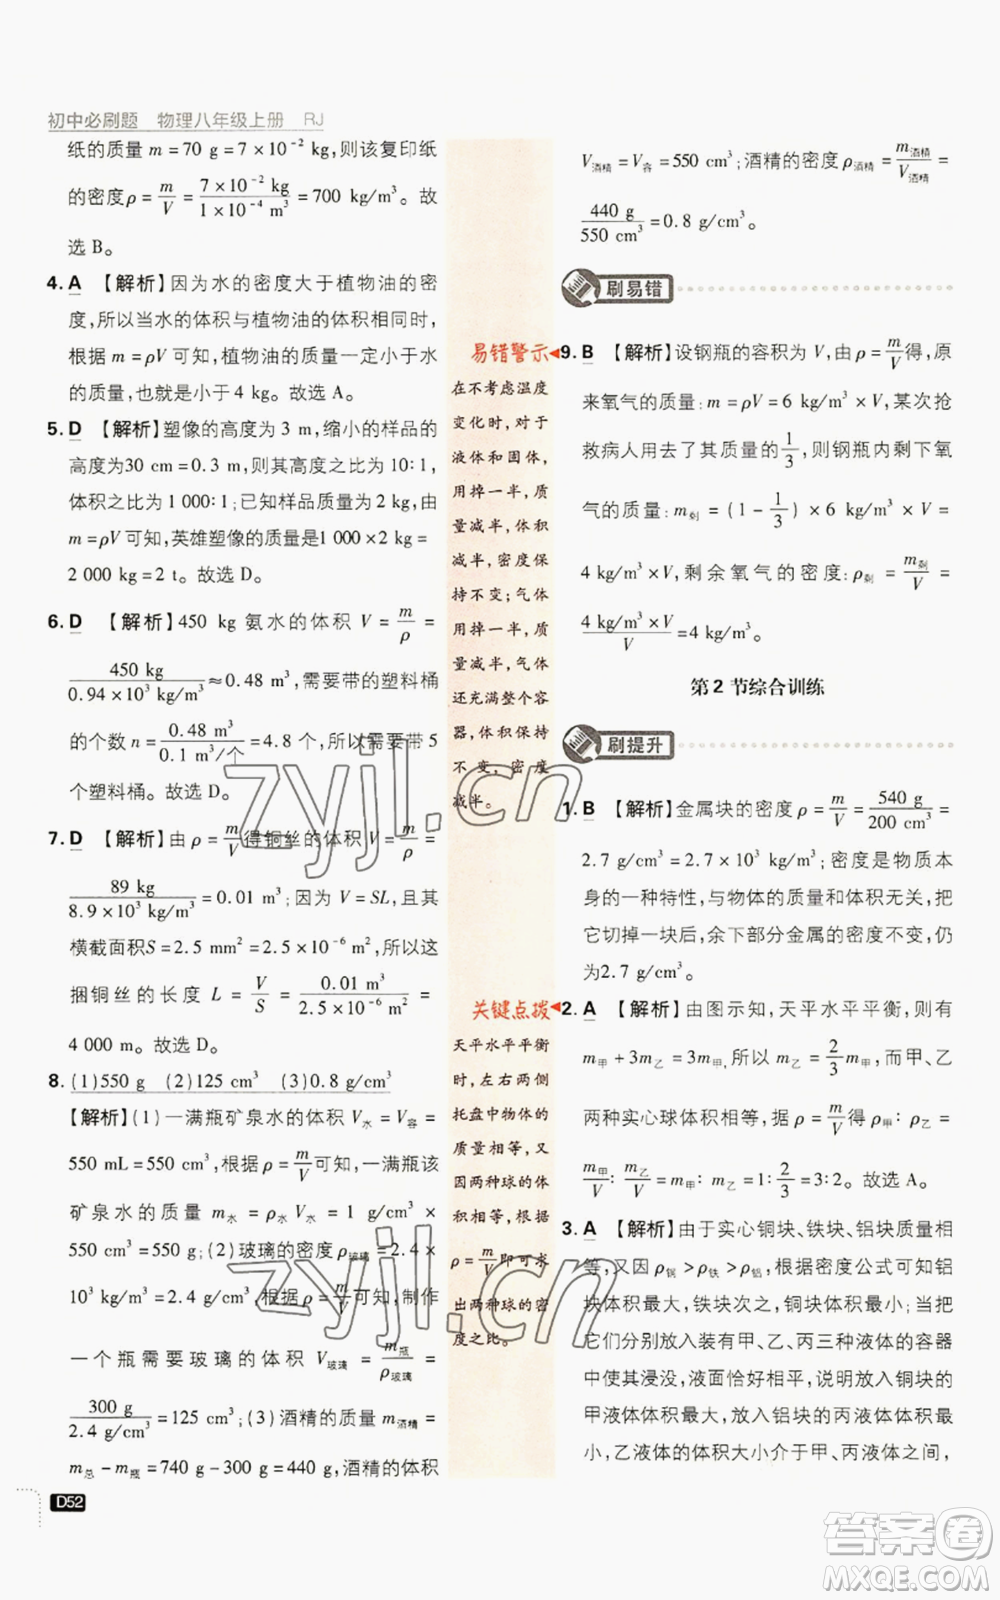 初中必刷题 物理八年级上册 RJ
纸的质量 m = 70 g = 7 × 10⁻² kg,则该复印纸
的密度ρ = m/V = (7 × 10⁻² kg)/(1 × 10⁻⁴ m³) = 700 kg/m³。故
选 B。
4. A 【解析】因为水的密度大于植物油的密
度,所以当水的体积与植物油的体积相等时,
根据 m = ρV 可知,植物油的质量一定小于水
的质量,也就是小于 4 kg。故选 A。
5. D 【解析】塑像的高度为 3 m,缩小的样品的
高度为30 cm = 0.3 m,则其高度之比为 10∶1,
体积之比为 1 000∶1;已知样品质量为 2 kg,由
m = ρV 可知,英雄塑像的质量是1 000 × 2 kg =
2 000 kg = 2 t。故选 D。
6. D 【解析】450 kg 氨水的体积 V = m/ρ =
(450 kg)/(0.94 × 10³ kg/m³) ≈ 0.48 m³,需要带的塑料桶
的个数 n = (0.48 m³)/(0.1 m³/个) = 4.8 个,所以需要带 5
个塑料桶。故选 D。
7. D 【解析】由 ρ = m/V 得铜丝的体积 V = m/ρ =
(89 kg)/(8.9 × 10³ kg/m³) = 0.01 m³;因为 V = SL,且
横截面积S = 2.5 mm² = 2.5 × 10⁻⁶ m²,所以这
捆铜丝的长度 L = V/S = (0.01 m³)/(2.5 × 10⁻⁶ m²) =
4 000 m。故选 D。
8. (1)550 g (2)125 cm³ (3)0.8 g/cm³
【解析】(1)一满瓶矿泉水的体积 V水 = V容 =
550 mL = 550 cm³,根据 ρ = m/V 可知,一满瓶该
矿泉水的质量 m水 = ρ水 V水 = 1 g/cm³ ×
550 cm³ = 550 g;(2)玻璃的密度ρ玻璃 = 2.4 ×
10³ kg/m³ = 2.4 g/cm³,根据 ρ = m/V 可知,制作
一个瓶需要玻璃的体积 V玻璃 = m瓶/ρ玻璃 =
(300 g)/(2.4 g/cm³) = 125 cm³;(3)酒精的质量 m酒精 =
m总 − m瓶 = 740 g − 300 g = 440 g,酒精的体积
D52
易错警示
在不考虑温度
变化时,对于
液体和固体,
用掉一半,质
量减半,体积
减半,密度保
持不变;气体
用掉一半,质
量减半,气体
还充满整个容
器,体积保持
不变,密度
减半。
关键点拨
天平水平平衡
时,左右两侧
托盘中物体的
质量相等,又
因两种球的体
积相等,根据
ρ = m/V 即可求
出两种球的密
度之比。
V酒精 = V容 = 550 cm³;酒精的密度ρ酒精 = m酒精/V酒精 =
(440 g)/(550 cm³) = 0.8 g/cm³。
刷易错
9. B 【解析】设钢瓶的容积为 V,由 ρ = m/V得,原
来氧气的质量:m = ρV = 6 kg/m³ × V,某次抢
救病人用去了其质量的1/3,则钢瓶内剩下氧
气的质量:m剩 = (1 − 1/3) × 6 kg/m³ × V =
4 kg/m³ × V,剩余氧气的密度:ρ剩 = m剩/V =
(4 kg/m³ × V)/V = 4 kg/m³。
第 2 节综合训练
刷提升
1. B 【解析】金属块的密度 ρ = m/V = (540 g)/(200 cm³) =
2.7 g/cm³ = 2.7 × 10³ kg/m³;密度是物质本
身的一种特性,与物体的质量和体积无关,把
它切掉一块后,余下金属的密度不变,仍
为2.7 g/cm³。
2. A 【解析】由图示知,天平水平平衡,则有
m甲 + 3m乙 = 3m甲,所以 m乙 = 2/3 m甲,而甲、乙
两种实心球体积相等,据 ρ = m/V得 ρ甲∶ρ乙 =
m甲/V∶m乙/V = m甲∶m乙 = 1∶2/3 = 3∶2。故选 A。
3. A 【解析】由于实心铜块、铁块、铝块质量相
等,又因 ρ铜 > ρ铁 > ρ铝,根据密度公式可知铝
块体积最大,铁块次之,铜块体积最小;当把
它们分别放入装有甲、乙、丙三种液体的容器
中使其浸没,液面恰好相平,说明放入铜块的
甲液体体积最大,放入铝块的丙液体体积最
小,乙液体的体积大小介于甲、丙液体之间,
zyjl.cn
zyjl.cn
答案卷
MXQE.COM